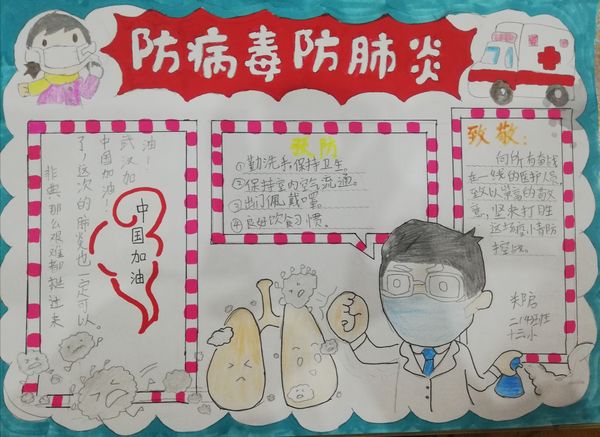 防病毒防肺炎
非典那么艰难都挺过来
了!这次的肺炎也一定可以。
中国加油!
武汉加
油!
中国加油
预防
①勤洗手,保持卫生。
②保持室内空气流通。
③出门佩戴口罩。
④良好饮食习惯。
致敬:
向所有奋战
在一线的医护人员
致以崇高的敬
意,坚决打胜
这场疫情防
控战。
十三小